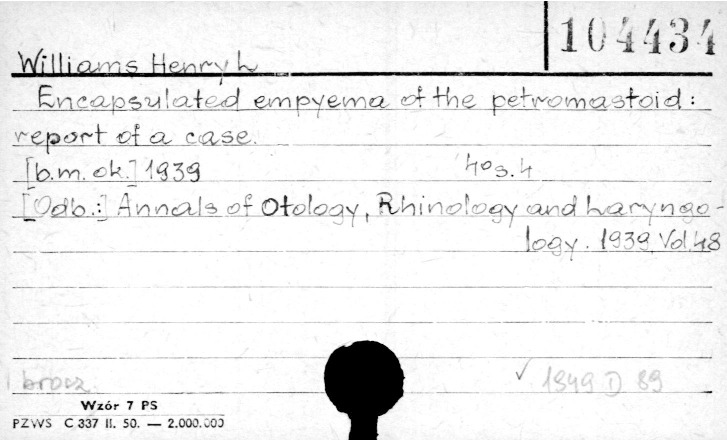 104434
Williams Henry L
Encapsulated empyema of the petromastoid:
report of a case.
[b.m. ok.] 1939 4os. 4
[Odb.:] Annals of Otology, Rhinology and Laryngo-
logy. 1939 Vol. 48
brosz. ✓ 1949 D 89
Wzór 7 PS
PZWS C 337 II. 50. — 2.000.000